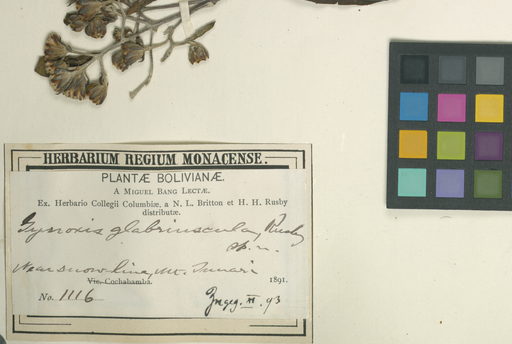 HERBARIUM REGIUM MONACENSE.
PLANTÆ BOLIVIANÆ.
A MIGUEL BANG LECTÆ.
Ex. Herbario Collegii Columbiæ, a N. L. Britton et H. H. Rusby
distributæ.
Gynoxis glabriuscula, Rusby
sp. n.
Near snow line, Mt. Tunari
Vic. Cochabamba. 1891.
No. 1116 Ingeg. VI. 93